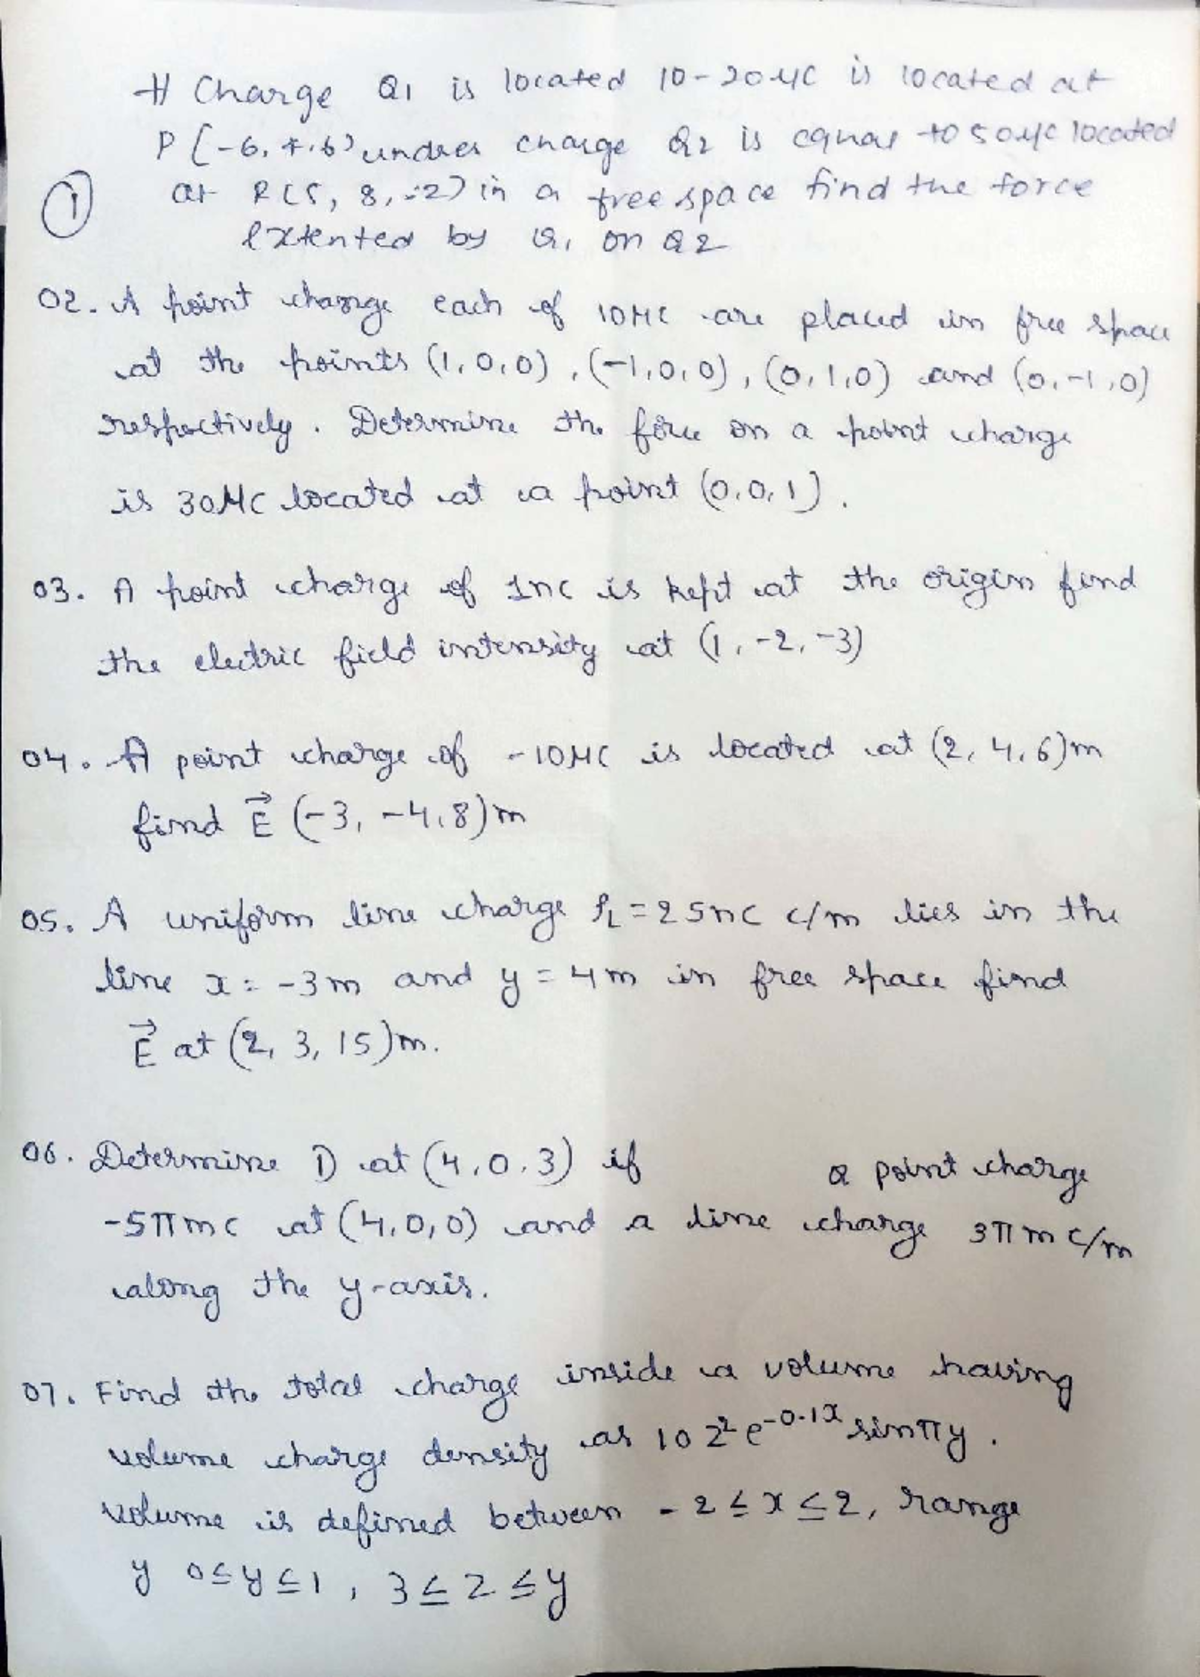 # Charge Q1 is located 10-20 μC is located at
P [-6, 4, 6) under charge Q2 is equal to 50 μC located
① at R(5, 8, -2) in a free space find the force
extented by Q1 on Q2
02. A point charge each of 10 μC are placed in free space
at the points (1, 0, 0), (-1, 0, 0), (0, 1, 0) and (0, -1, 0)
respectively. Determine the force on a point charge
is 30 μC located at a point (0, 0, 1).
03. A point charge of 1nC is kept at the origin find
the electric field intensity at (1, -2, -3)
04. A point charge of -10 μC is located at (2, 4, 6)m
find E⃗ (-3, -4, 8)m
05. A uniform line charge ρL = 25nC C/m lies in the
line x = -3m and y = 4m in free space find
E⃗ at (2, 3, 15)m.
06. Determine D at (4, 0, 3) if a point charge
-5πmC at (4, 0, 0) and a line charge 3πm C/m
along the y-axis.
07. Find the total charge inside a volume having
volume charge density as 10 z² e^-0.1x sinπy.
volume is defined between -2 ≤ x ≤ 2, range
y 0 ≤ y ≤ 1, 3 ≤ z ≤ y